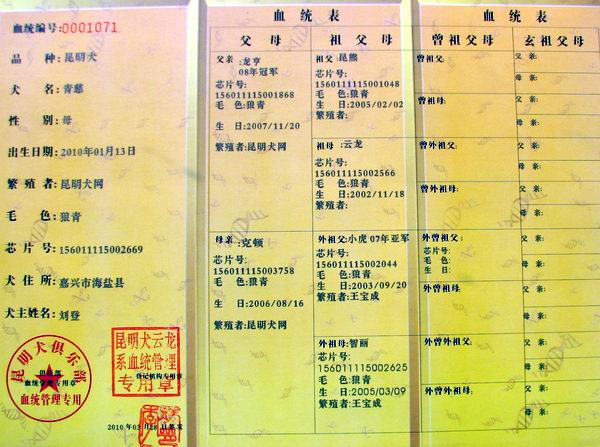 血统编号:0001071
品 种:昆明犬
犬 名:青慈
性 别:母
出生日期:2010年01月13日
繁 殖 者:昆明犬网
毛 色:狼青
芯 片 号:156011115002669
犬 住 所:嘉兴市海盐县
犬主姓名:刘登
昆明犬俱乐部
俱乐部
血统管理专用章
血统管理专用
昆明犬云龙
系血统管理
登记机构专用章
专用章
2010 年 03 月 28 日 签发
血 统 表
父 母
祖 父 母
父亲 :龙亨
08年冠军
芯片号:
156011115001868
毛 色:狼青
生 日:2007/11/20
繁殖者:昆明犬网
祖父:昆熊
芯片号:
156011115001048
毛 色:狼青
生 日:2005/02/02
繁殖者:
祖母 :云龙
芯片号:
156011115002566
毛 色:狼青
生 日:2002/11/18
繁殖者:
母亲 :克顿
芯片号:
156011115003758
毛 色:狼青
生 日:2006/08/16
繁殖者:昆明犬网
外祖父:小虎 07年亚军
芯片号:
156011115002044
毛 色:狼青
生 日:2003/09/20
繁殖者:王宝成
外祖母:智丽
芯片号:
156011115002625
毛 色:狼青
生 日:2005/03/09
繁殖者:王宝成
血 统 表
曾祖父母
玄祖父母
曾祖父:
父 亲:
母 亲:
曾祖母:
父 亲:
母 亲:
曾外祖父:
父 亲:
母 亲:
曾外祖母:
父 亲:
母 亲:
外曾祖父:
芯片号:
毛 色:
生 日:
父 亲:
母 亲:
外曾祖母:
父 亲:
母 亲:
曾外祖父:
父 亲:
母 亲:
曾外祖母:
父 亲:
母 亲: